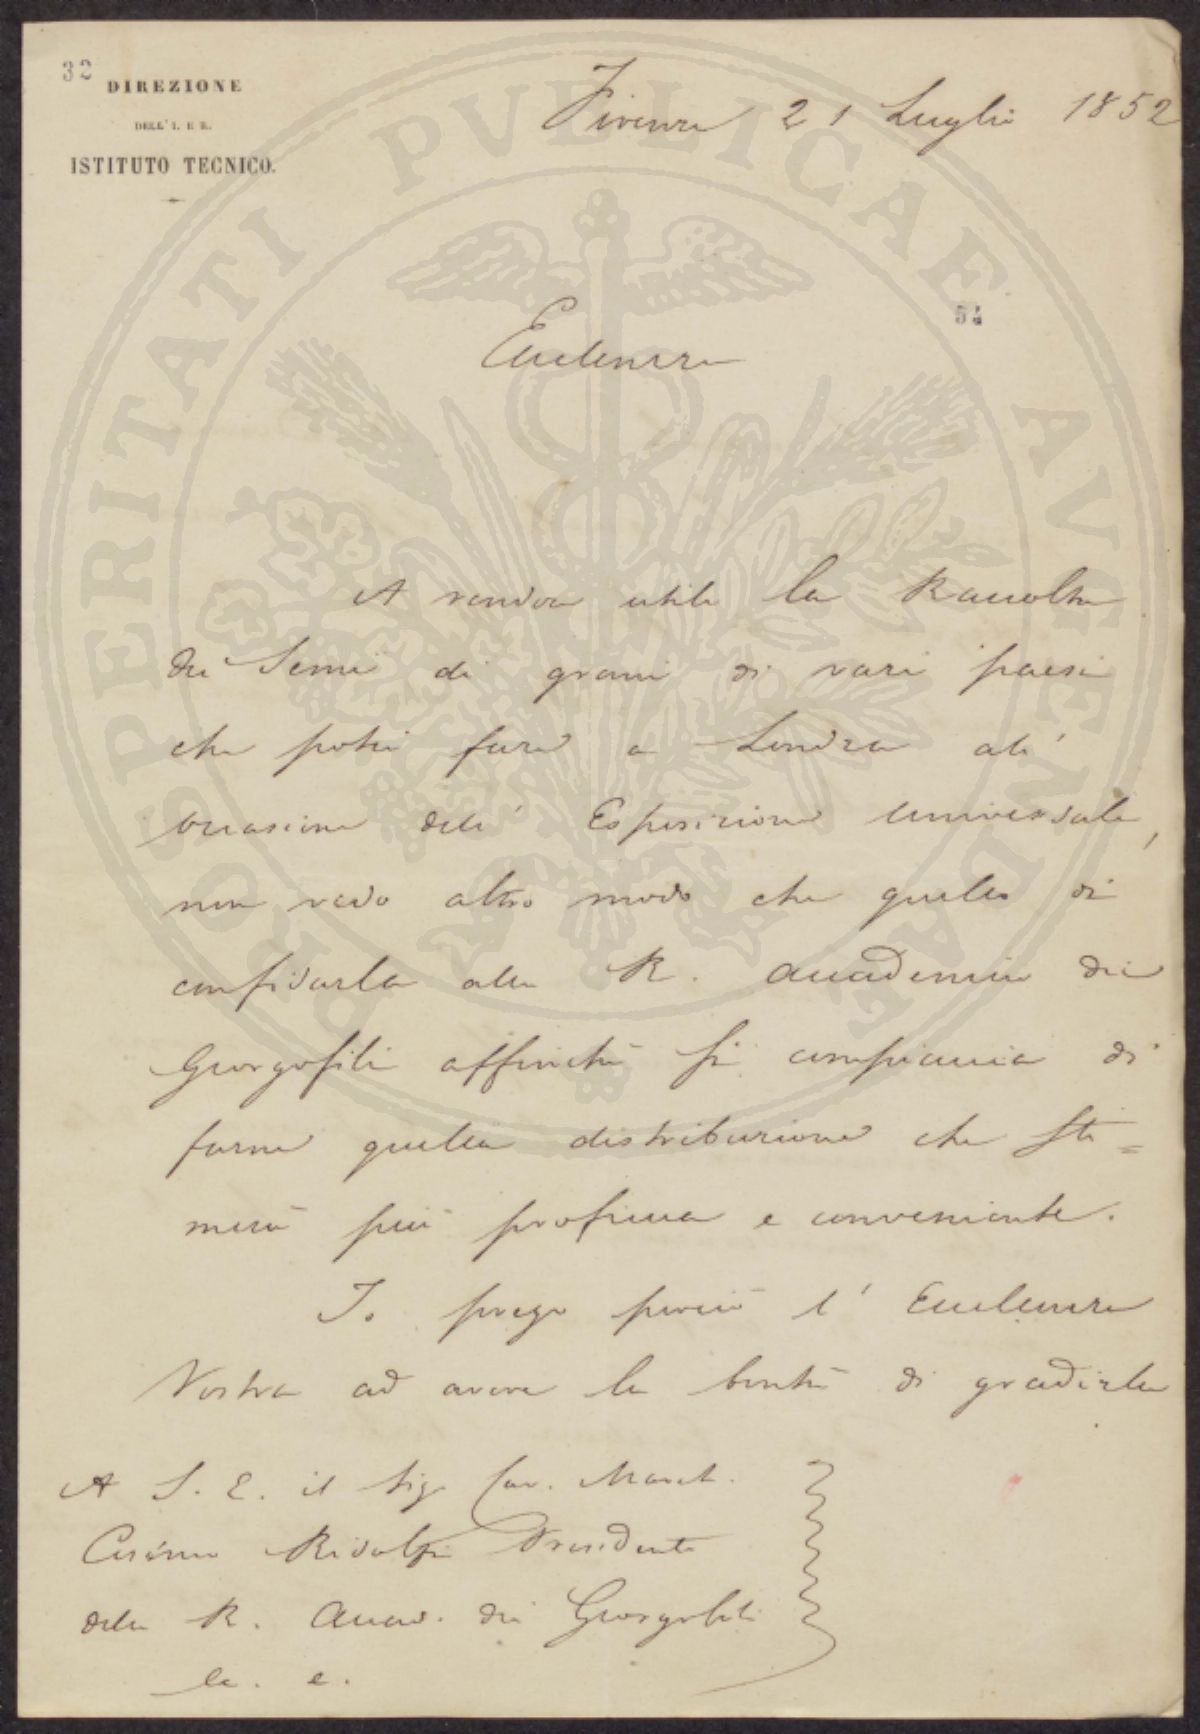 32
DIREZIONE
DELL' I. E R.
ISTITUTO TECNICO.
Firenze 21 Luglio 1852
54
Eccellenza
A render utile la Raccolta
dei Semi di grani di vari paesi
che potei fare a Londra all'
occasione dell' Esposizione Universale,
non vedo altro modo che quello di
confidarla alla R. Accademia dei
Georgofili affinchè si compiaccia di
farne quella distribuzione che sti=
merà più proficua e conveniente.
Io prego perciò l' Eccellenza
Vostra ad avere la bontà di gradirla
A S. E. il Sig. Cav. March.
Cosimo Ridolfi Presidente
della R. Accad. dei Georgofili
PROSPERITATI PVBLICAE AVGENDAE